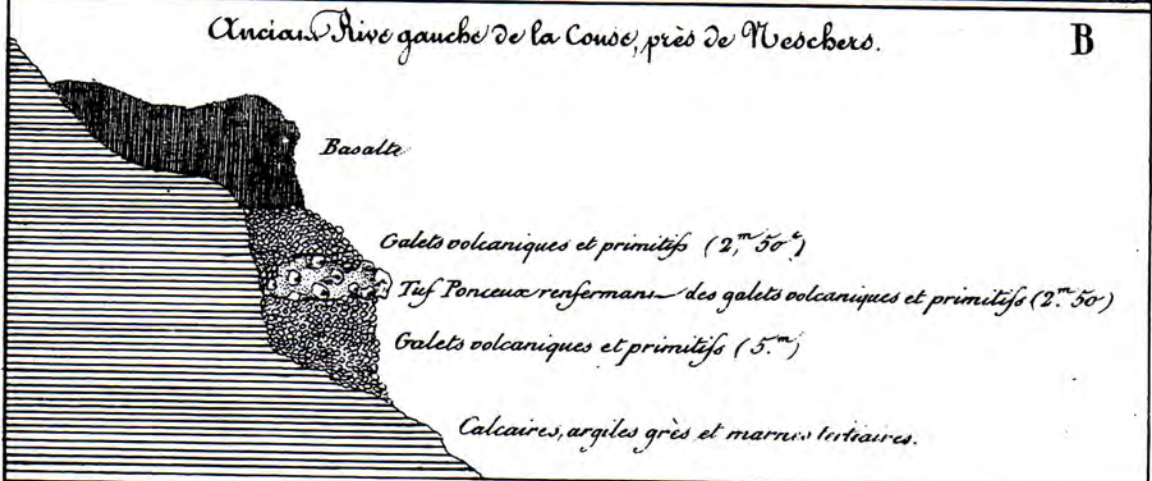 Ancian Rive gauche de la Couse, près de Neschers.
B
Basalte
Galets volcaniques et primitifs (2,m 50c)
Tuf Ponceux renfermant des galets volcaniques et primitifs (2.m 50)
Galets volcaniques et primitifs (5.m)
Calcaires, argiles grès et marnes tertiaires.